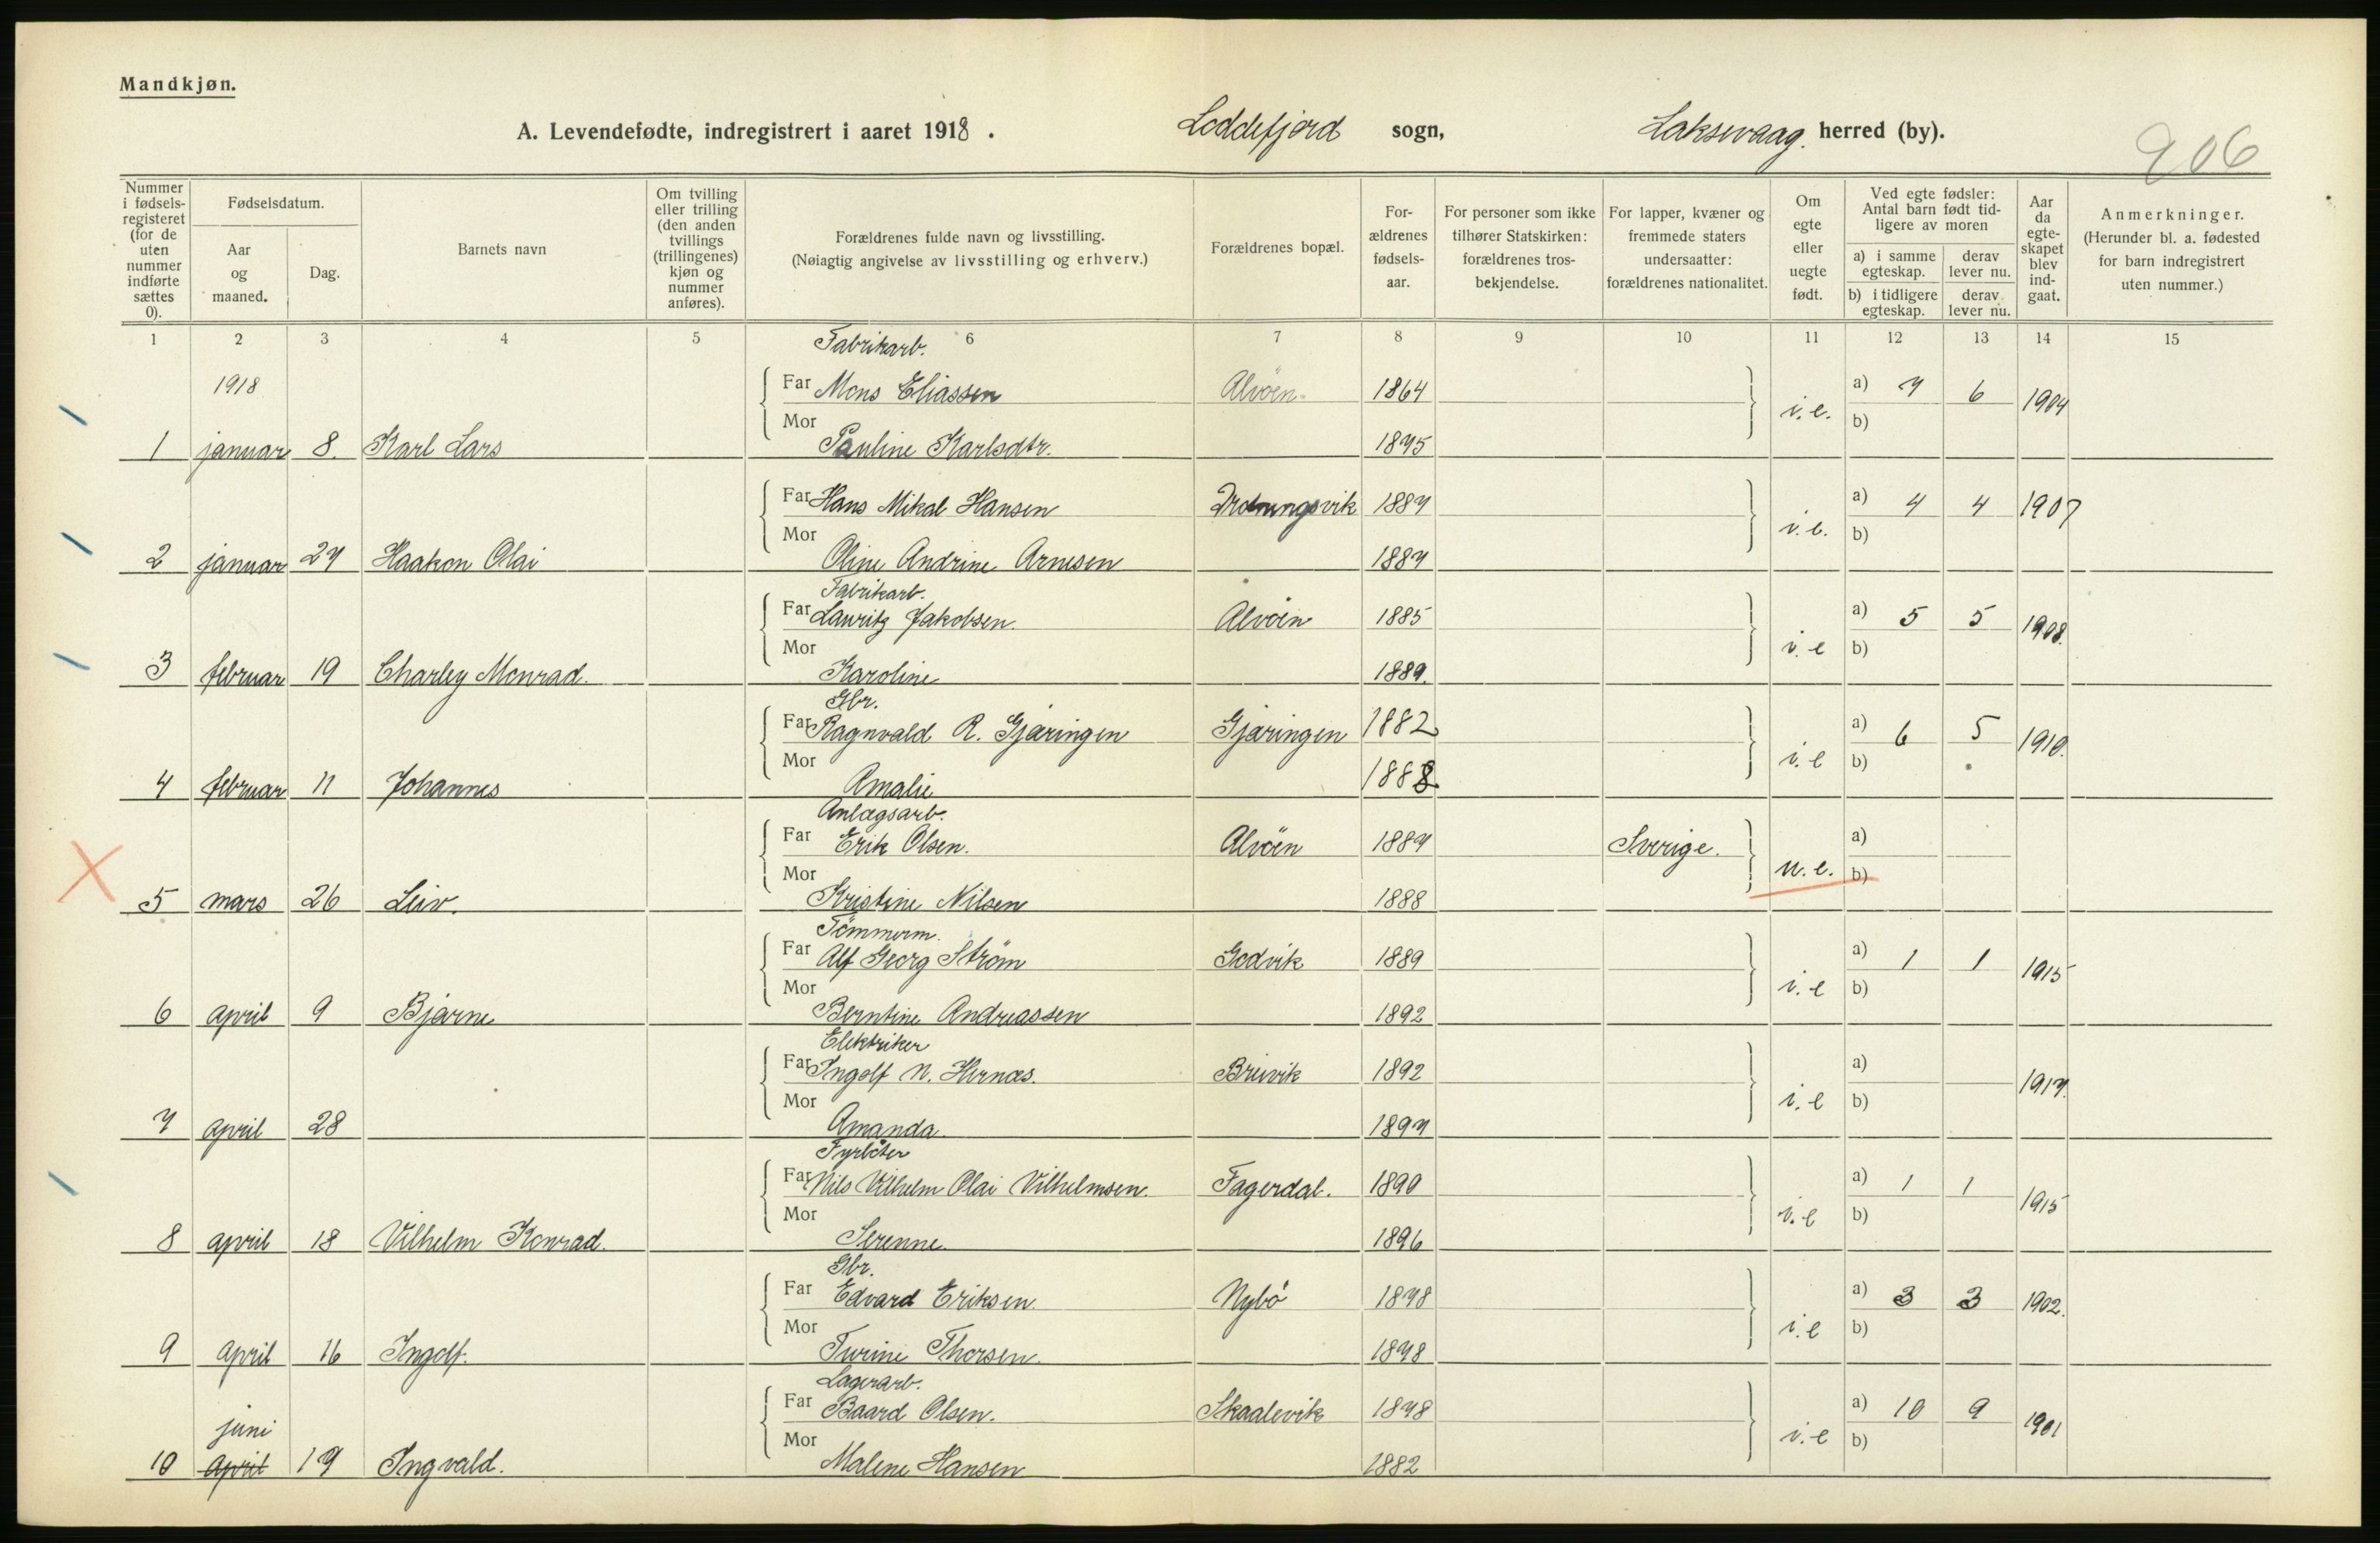 Mandkjøn.
A. Levendefødte, indregistrert i aaret 1918 . Loddefjord sogn, Laksevaag. herred (by).
906
Nummer i fødselsregisteret (for de uten nummer indførte sættes 0). Fødselsdatum. Aar og maaned. Dag. Barnets navn Om tvilling eller trilling (den anden tvillings (trillingenes) kjøn og nummer anføres). Forældrenes fulde navn og livsstilling. (Nøiagtig angivelse av livsstilling og erhverv.) Forældrenes bopæl. Forældrenes fødselsaar. For personer som ikke tilhører Statskirken: forældrenes trosbekjendelse. For lapper, kvæner og fremmede staters undersaatter: forældrenes nationalitet. Om egte eller uegte født. Ved egte fødsler: Antal barn født tidligere av moren a) i samme egteskap. derav lever nu. b) i tidligere egteskap. derav lever nu. Aar da egteskapet blev indgaat. Anmerkninger. (Herunder bl. a. fødested for barn indregistrert uten nummer.)
1 2 3 4 5 6 7 8 9 10 11 12 13 14 15
Fabrikarb.
1918 Far Mons Eliassen Alvöen. 1864 i.e. a) 7 6 1904
Mor b)
1 januar 8. Karl Lars Pauline Karlsdtr. 1875
Far Hans Mikal Hansen Drotningsvik 1887 i.e. a) 4 4 1907
Mor b)
2 januar 27 Haakon Olai Oline Andrine Arnesen 1887
Fabrikarb.
Far Lauritz Jakobsen. Alvöen 1885 i.e a) 5 5 1908.
Mor b)
3 februar 19 Charley Monrad. Karoline 1889.
Gbr.
Far Ragnvald R. Gjæringen Gjæringen 1882 i.e a) 6 5 1910.
Mor b)
4 februar 11 Johannes Amalie 1888
Anlægsarb.
Far Erik Olsen. Alvöen 1887 Sverige. u.e. a)
Mor b)
5 mars 26 Leiv. Kristine Nilsen 1888
Tömmerm.
Far Alf Georg Ström Godvik 1889 i.e a) 1 1 1915
Mor b)
6 april 9 Bjarne Berntine Andreassen 1892
Elektriker
Far Ingolf N. Hernæs. Breivik 1892 i.e a) 1917.
Mor b)
7 april 28 Amanda. 1897
Fyrböter
Far Nils Vilhelm Olai Vilhelmsen. Fagerdal. 1890 i.e a) 1 1 1915
Mor b)
8 april 18 Vilhelm Konrad. Serenne. 1896
Gbr.
Far Edvard Eriksen. Nybö 1878 i.e a) 3 3 1902.
Mor b)
9 april 16 Ingolf. Turine Thorsen. 1878
Lagerarb.
Far Baard Olsen. Skaalevik 1878 i.e a) 10 9 1901
juni Mor b)
10 april 19 Ingvald. Malene Hansen 1882